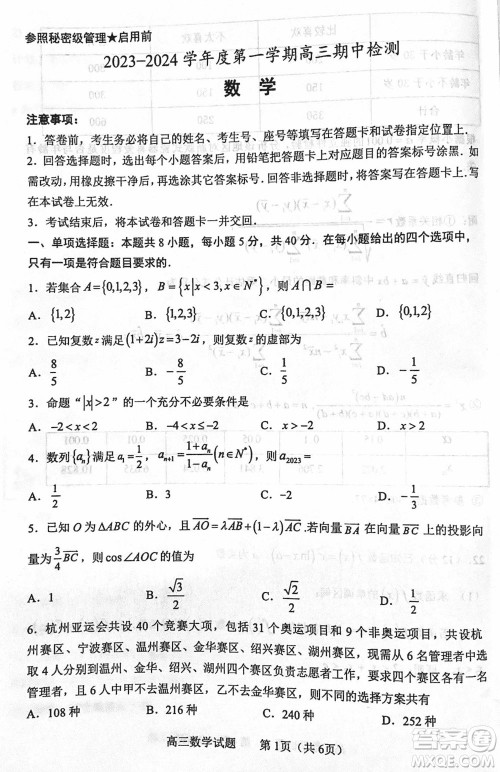 参照秘密级管理★启用前
2023-2024学年度第一学期高三期中检测
数学
注意事项：
1．答卷前，考生务必将姓名、考生号、座号等填写在答题卡和试卷指定位置上．
2．回答选择题时，选出每个小题答案后，用铅笔把答题卡上对应题目的答案标号涂黑．如
需改动，用橡皮擦干净后，再选涂其他答案标号．回答非选择题时，将答案写在答题卡上，
写在本试卷上无效．
3．考试结束后，将本试卷和答题卡一并交回．
一、单项选择题：本题共8小题，每小题5分，共40分．在每小题给出的四个选项中，
只有一项是符合题目要求的．
1．若集合 A={0,1,2,3}，B={x|x<3,x∈N*}，则 A∩B=
A．{1,2} B．{0,1,2} C．{1,2,3} D．{0,1,2,3}
2．已知复数 z 满足 (1+2i)z=3-2i，则 z 的虚部为
A．8/5 B．-8/5 C．-1/5 D．1/5
3．命题“|x|>2”的一个充分不必要条件是
A．-2<x<2 B．-4<x≤-2 C．x>-2 D．x>2
4．数列 {aₙ} 满足 a₁=1/2，aₙ₊₁=(1+aₙ)/(1-aₙ)(n∈N*)，则 a₂₀₂₃=
A．1/2 B．3 C．-2 D．-1/3
5．已知 O 为 ΔABC 的外心，且 AO=λAB+(1-λ)AC．若向量 BA 在向量 BC 上的投影向
量为 3/4 BC，则 cos∠AOC 的值为
A．1 B．√3/2 C．1/2 D．√2/2
6．杭州亚运会共设40个竞赛大项，包括31个奥运项目和9个非奥运项目，共设杭
州赛区、宁波赛区、温州赛区、金华赛区、绍兴赛区、湖州赛区，现需从6名管理者
中选取4人分别到温州、金华、绍兴、湖州四个赛区负责志愿者工作，要求四个赛区
各有一名管理者，且6人中甲不去温州赛区，乙不去金华赛区，则不同的选择方案共有
A．108种 B．216种 C．240种 D．252种
高三数学试题 第1页（共6页）